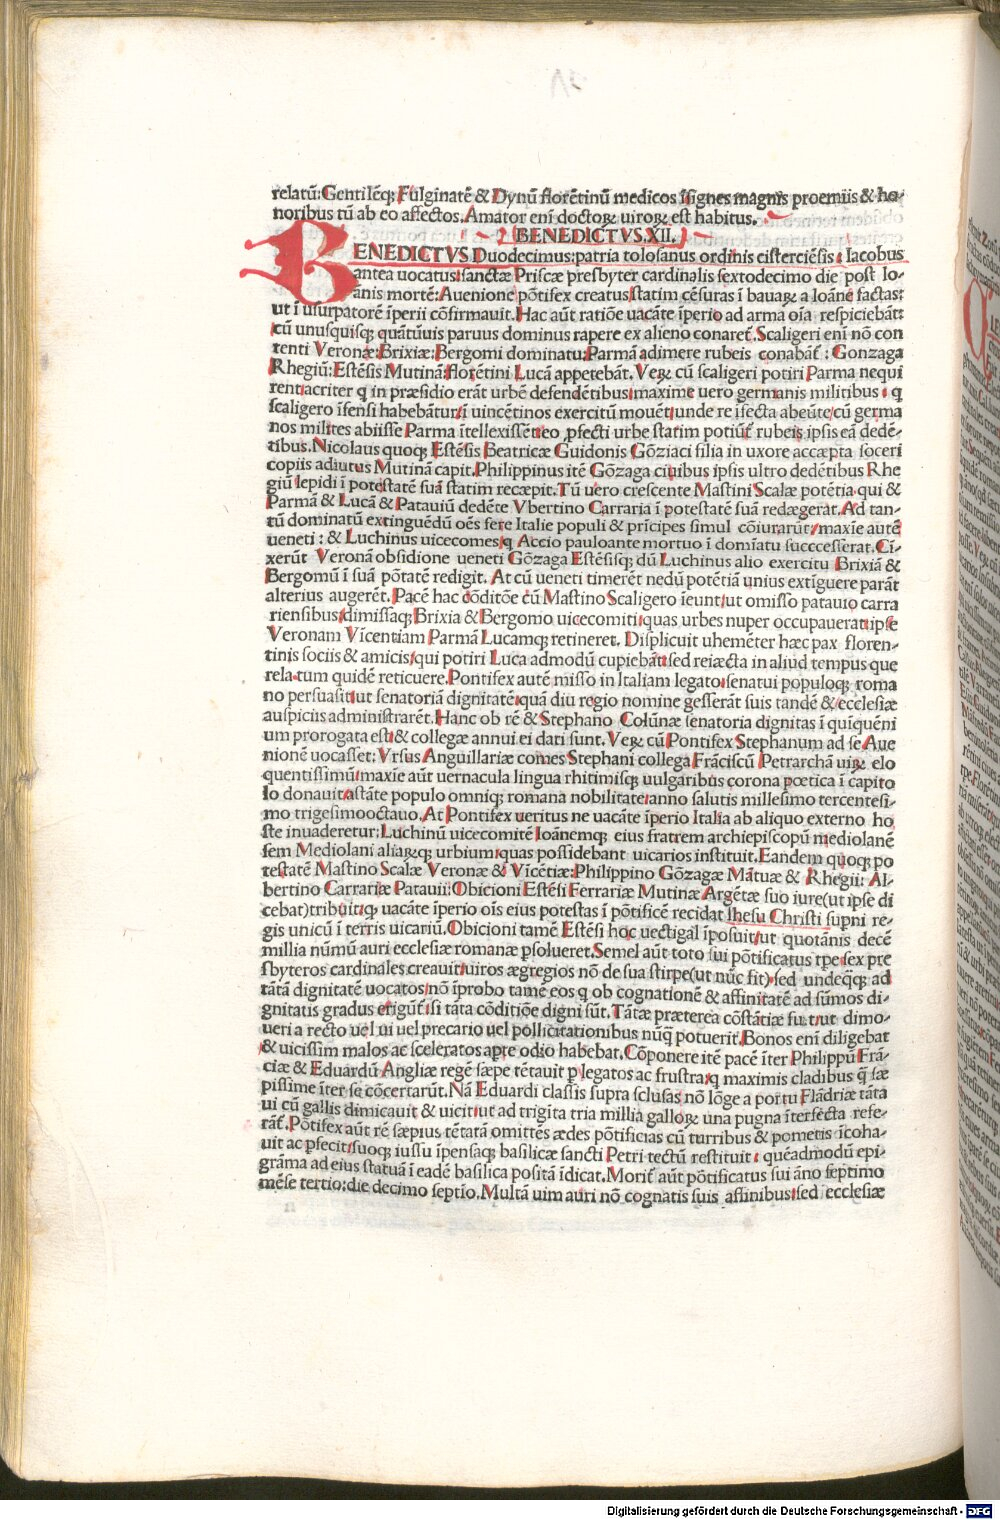 relatū:Gentilēqꝫ Fulginatē & Dynū florētinū medicos īsignes magnis proemiis & ho-
noribus tū ab eo affectos. Amator eni doctoꝝ uiroꝝ est habitus.
BENEDICTVS.XII.
BENEDICTVS Duodecimus:patria tolosanus ordinis cisterciēsis: Iacobus
antea uocatus:sanctæ Priscæ presbyter cardinalis sextodecimo die post Io-
ānis mortē:Auenione pōtifex creatus:statim cēsuras ī bauaꝝ a Ioāne factas:
ut ī usurpatorē īperii cōfirmauit. Hac aūt ratiōe uacāte īperio ad arma oīa respiciebāt:
cū unusquisqꝫ quātūuis paruus dominus rapere ex alieno conaret̄. Scaligeri eni nō con
tenti Veronæ:Brixiæ:Bergomi dominatu:Parmā adimere rubeis conabāt̄: Gonzaga
Rhegiū:Estēsis Mutinā:florētini Lucā appetebāt. Veꝝ cū scaligeri potiri Parma nequi
rent:acriter q in præsidio erāt urbē defendētibus:maxime uero germanis militibus: q
scaligero īfensi habebātur:ī uincētinos exercitū mouēt:unde re īfecta abeūte:cū germa
nos milites abiisse Parma ītellexissēt:eo ꝓfecti urbe statim potiūt̄ rubeis ipsis eā dedē-
tibus. Nicolaus quoqꝫ Estēsis Beatricæ Guidonis Gōziaci filia in uxore accæpta soceri
copiis adiutus Mutinā capit. Philippinus itē Gōzaga ciuibus ipsis ultro dedētibus Rhe
giū lepidi ī potestatē suā statim recæpit. Tū uero crescente Mastini Scalæ potētia qui &
Parmā & Lucā & Patauiū dedēte Vbertino Carraria ī potestatē suā redægerāt. Ad tan-
tū dominatū extinguēdū oēs fere Italie populi & prīcipes simul cōiurarūt:maxie autē
ueneti: & Luchinus uicecomes:q Accio pauloante mortuo ī domīatu succcesserat. Cī-
xerūt Veronā obsidione ueneti Gōzaga Estēsisqꝫ dū Luchinus alio exercitu Brixiā &
Bergomū ī suā pōtatē redigit. At cū ueneti timerēt nedū potētiā unius extīguere parāt
alterius augerēt. Pacē hac cōditōe cū Mastino Scaligero ieunt:ut omisso patauio carra
riensibus:dimissaqꝫ Brixia & Bergomo uicecomiti:quas urbes nuper occupauerat:ipse
Veronam Vicentiam Parmā Lucamqꝫ retineret. Displicuit uhemēter hæc pax floren-
tinis sociis & amicis:qui potiri Luca admodū cupiebāt:sed reiæcta in aliud tempus que
rela-tum quidē reticuere. Pontifex autē misso in Italiam legato:senatui populoqꝫ roma
no persuasit:ut senatoriā dignitatē:quā diu regio nomine gesserāt suis tandē & ecclesiæ
auspiciis administrarēt. Hanc ob rē & Stephano Colūnæ senatoria dignitas ī quīquēni
um prorogata est:& collegæ annui ei dari sunt. Veꝝ cū Pontifex Stephanum ad se Aue
nionē uocasset: Vrsus Anguillariæ comes Stephani collega Frāciscū Petrarchā uiꝝ elo
quentissimū:maxie aūt uernacula lingua rhitimisqꝫ uulgaribus corona pœtica ī capito
lo donauit:astāte populo omniqꝫ romana nobilitate:anno salutis millesimo tercentesi-
mo trigesimooctauo. At Pontifex ueritus ne uacāte īperio Italia ab aliquo externo ho
ste inuaderetur:Luchinū uicecomitē Ioānemqꝫ eius fratrem archiepiscopū mediolanē
sem Mediolani aliaꝝqꝫ urbium:quas possidebant uicarios instituit. Eandem quoqꝫ po
testatē Mastino Scalæ Veronæ & Vicētiæ:Philippino Gōzagæ Mātuæ & Rhegii: Al-
bertino Carrariæ Patauii:Obicioni Estēsi Ferrariæ Mutinæ Argētæ suo iure(ut ipse di
cebat)tribuit:qꝫ uacāte īperio oīs eius potestas ī pōtificē recidat Ihesu Christi supni re-
gis unicū ī terris uicariū. Obicioni tamē Estēsi hoc uectigal īposuit:ut quotānis decē
millia nūmū auri ecclesiæ romanæ psolueret. Semel aūt toto sui pōtificatus tpe sex pre
sbyteros cardinales creauit:uiros ægregios nō de sua stirpe(ut nūc fit) sed undeq̄qꝫ ad
tātā dignitatē uocatos:nō īprobo tamē eos q ob cognationē & affinitatē ad sūmos di-
gnitatis gradus erigūt̄:si tāta cōditiōe digni sūt. Tātæ præterea cōstātiæ fuit:ut dimo-
ueri a recto uel ui uel precario uel pollicitationibus nūq̄ potuerit. Bonos eni diligebat
& uicissim malos ac sceleratos apte odio habebat. Cōponere itē pacē īter Philippū Frā-
ciæ & Eduardū Angliæ regē sæpe tētauit p legatos ac frustra:q maximis cladibus q̄ sæ
pissime īter se cōcertarūt. Nā Eduardi classis supra sclusas nō lōge a portu Flādriæ tāta
ui cū gallis dimicauit & uicit:ut ad trigīta tria millia galloꝝ una pugna īterfecta refe-
rāt̄. Pōtifex aūt rē sæpius tētatā omittēs ædes pōtificias cū turribus & pometis īcoha-
uit ac pfecit:suoqꝫ iussu īpensaqꝫ basilicæ sancti Petri tectū restituit: quēadmodū epi-
grāma ad eius statuā ī eadē basilica positā īdicat. Morit̄ aūt pōtificatus sui āno septimo
mēse tertio:die decimo septio. Multā uim auri nō cognatis suis affinibus:sed ecclesiæ
Digitalisierung gefördert durch die Deutsche Forschungsgemeinschaft - DFG